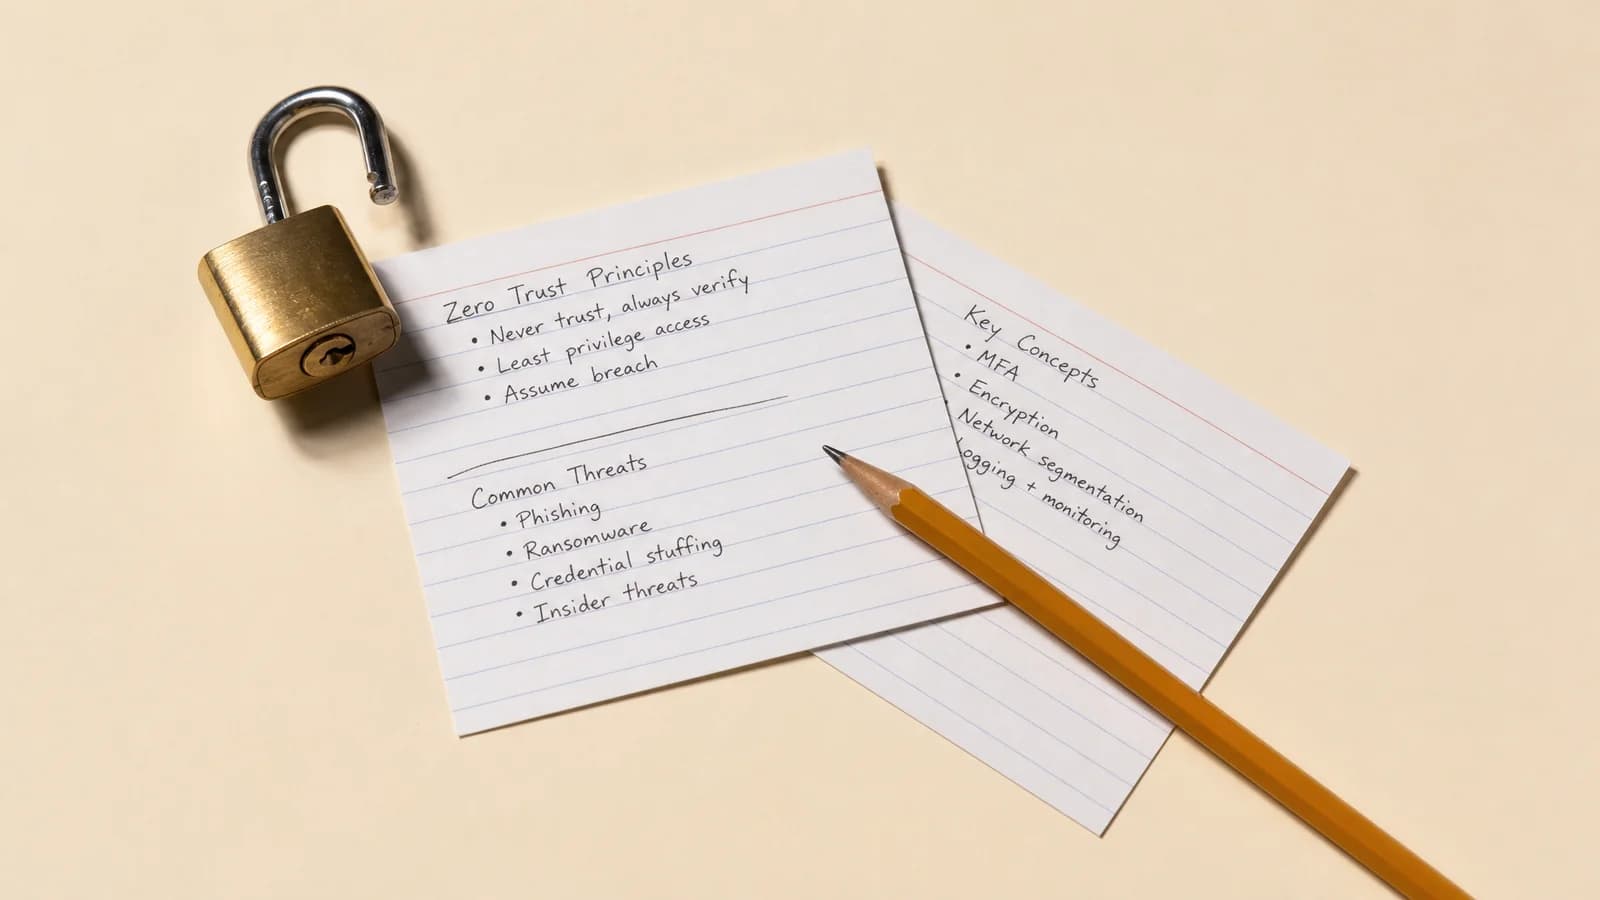 Zero Trust Principles
• Never trust, always verify
• Least privilege access
• Assume breach
Common Threats
• Phishing
• Ransomware
• Credential stuffing
• Insider threats
Key Concepts
• MFA
• Encryption
• Network segmentation
ogging + monitoring